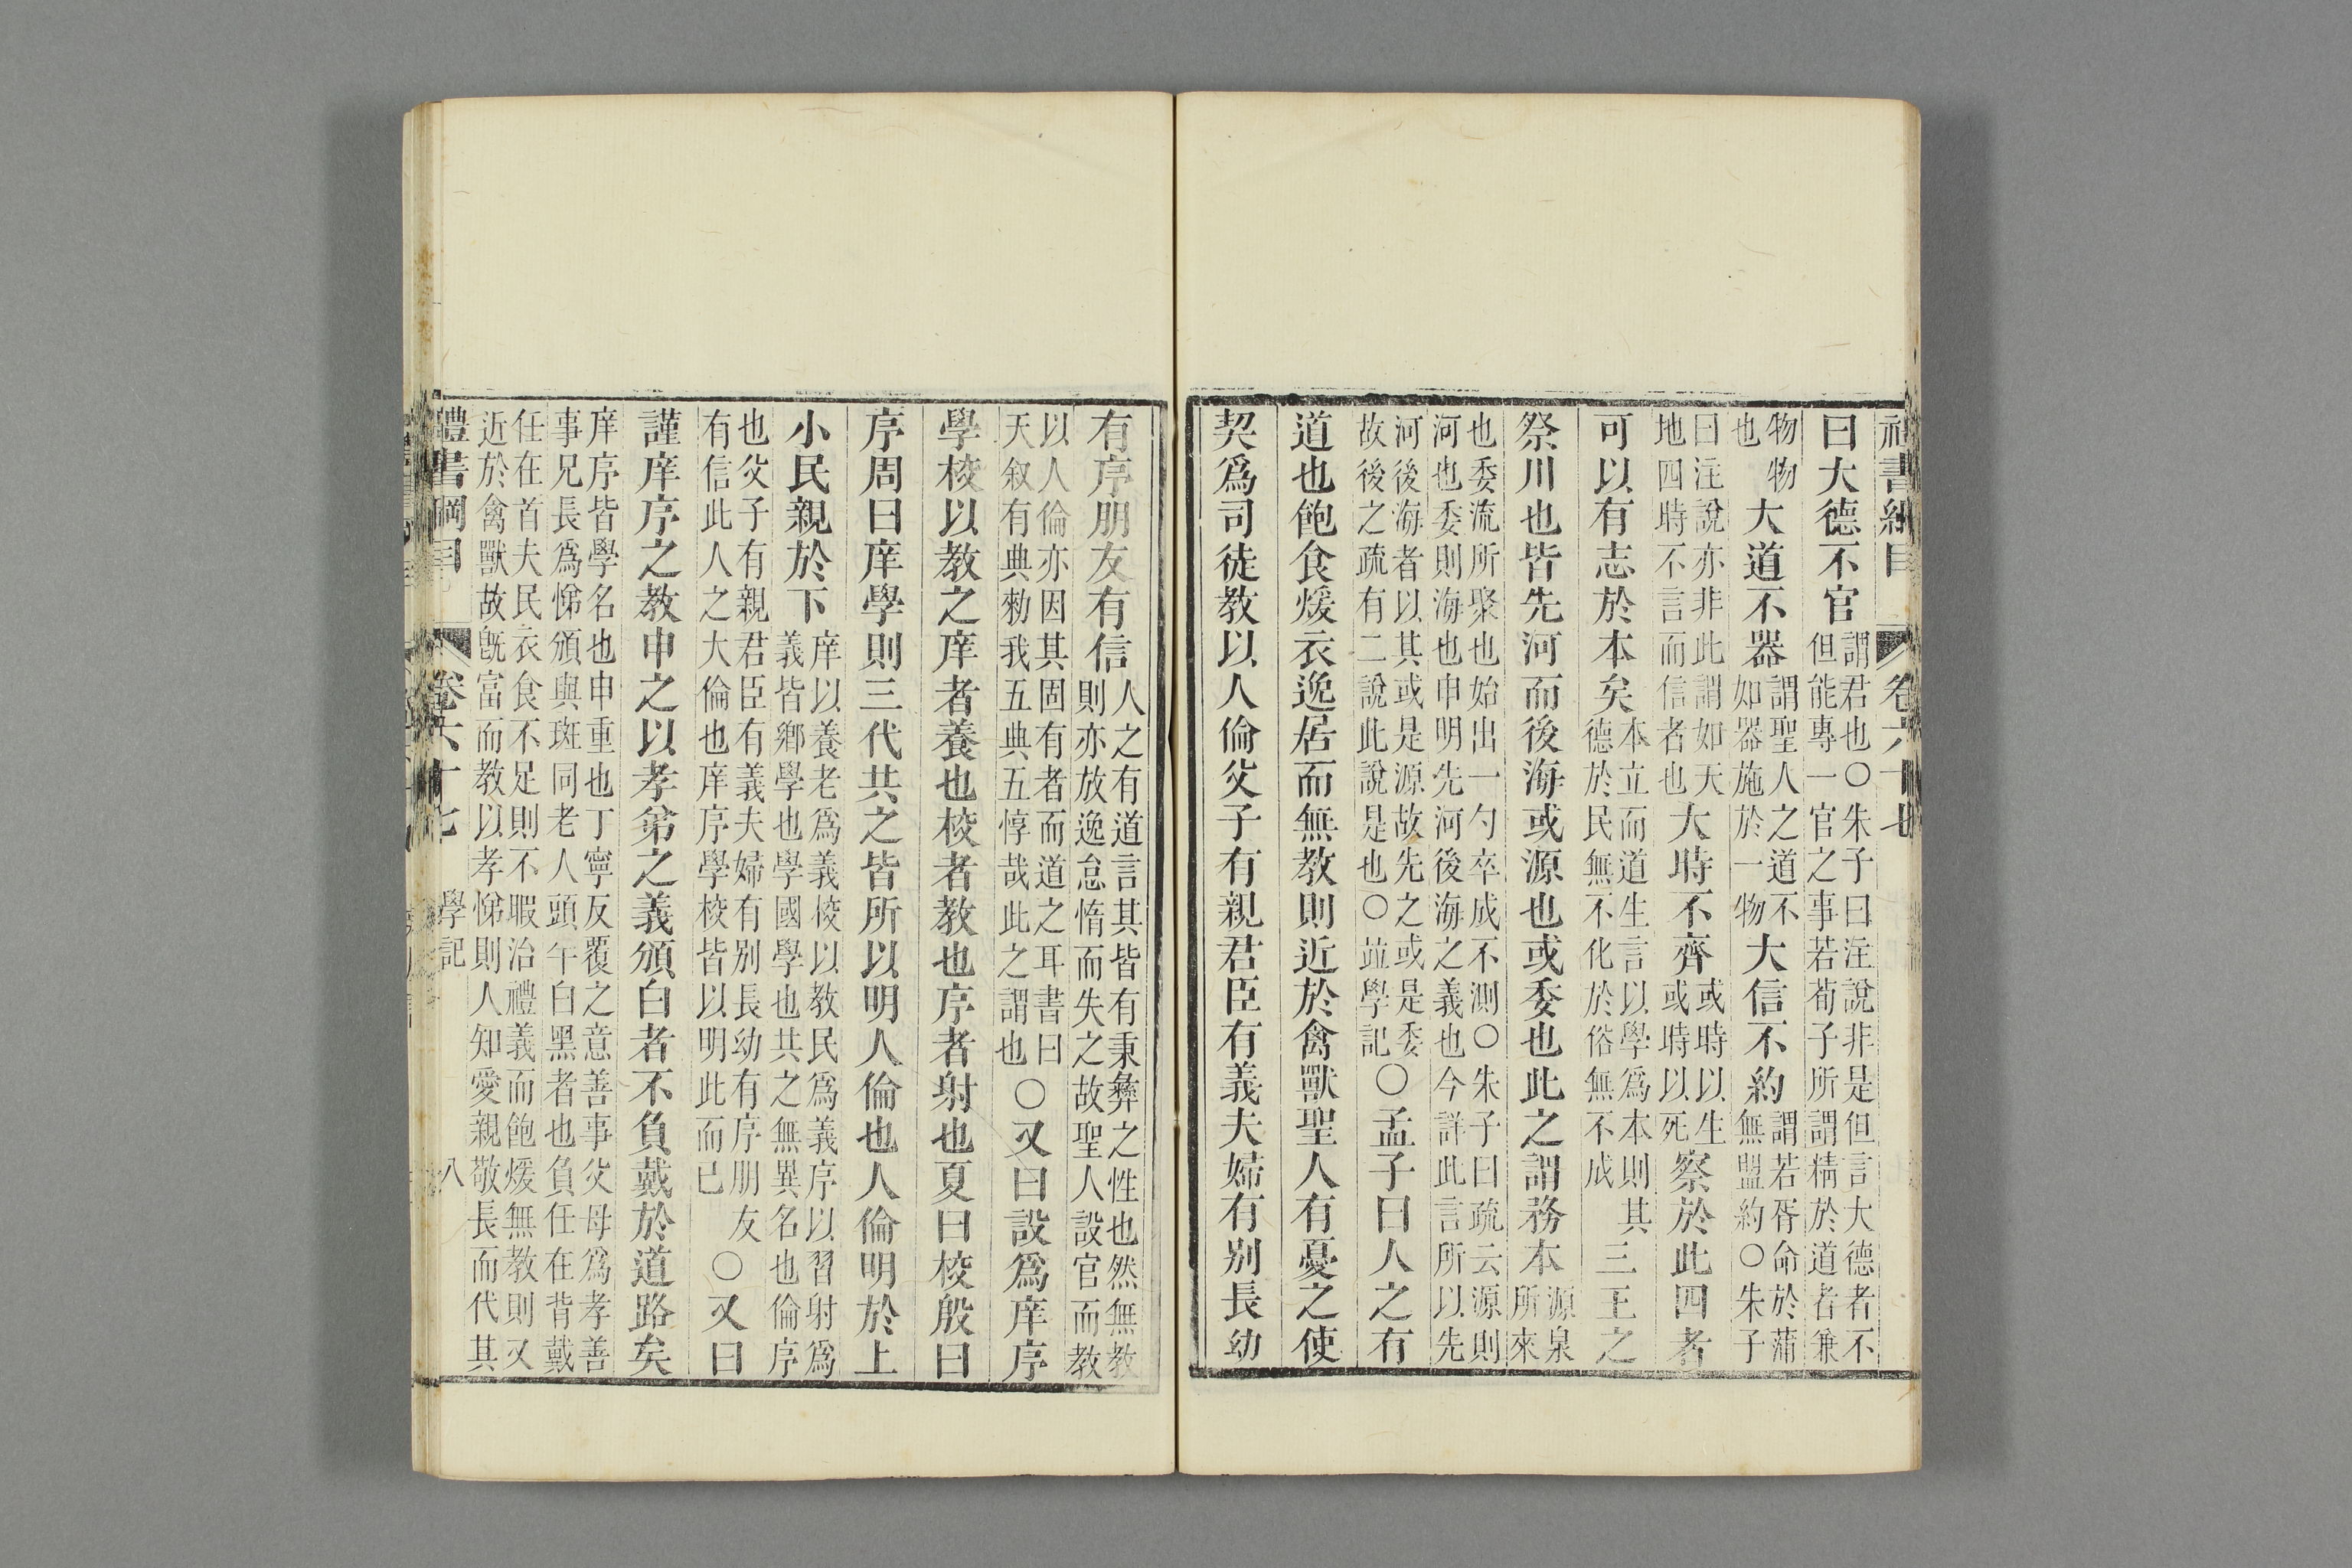 禮書綱目 卷六十七
曰大德不官謂君也○朱子曰注說非是但言大德者不但能專一官之事若荀子所謂精於道者兼
物物也大道不器謂聖人之道不如器施於一物大信不約謂若胥命於蒲無盟約○朱子
曰注說亦非此謂如天地四時不言而信者也大時不齊或時以生或時以死察於此四者
可以有志於本矣本立而道生言以學爲本則其德於民無不化於俗無不成三王之
祭川也皆先河而後海或源也或委也此之謂務本源泉所來
也委流所聚也始出一勺卒成不測○朱子曰疏云源則河也委則海也申明先河後海之義也今詳此言所以先
河後海者以其或是源故先之或是委故後之疏有二說此說是也○竝學記○孟子曰人之有
道也飽食煖衣逸居而無教則近於禽獸聖人有憂之使
契爲司徒教以人倫父子有親君臣有義夫婦有别長幼
有序朋友有信人之有道言其皆有秉彝之性也然無教則亦放逸怠惰而失之故聖人設官而教
以人倫亦因其固有者而道之耳書曰天叙有典勑我五典五惇哉此之謂也○又曰設爲庠序
學校以教之庠者養也校者教也序者射也夏曰校殷曰
序周曰庠學則三代共之皆所以明人倫也人倫明於上
小民親於下庠以養老爲義校以教民爲義序以習射爲義皆鄉學也學國學也共之無異名也倫序
也父子有親君臣有義夫婦有别長幼有序朋友有信此人之大倫也庠序學校皆以明此而已○又曰
謹庠序之教申之以孝弟之義頒白者不負戴於道路矣
庠序皆學名也申重也丁寧反覆之意善事父母爲孝善事兄長爲悌頒與斑同老人頭半白黑者也負任在背戴
任在首夫民衣食不足則不暇治禮義而飽煖無教則又近於禽獸故旣富而教以孝悌則人知愛親敬長而代其
禮書綱目 卷六十七 學記 八